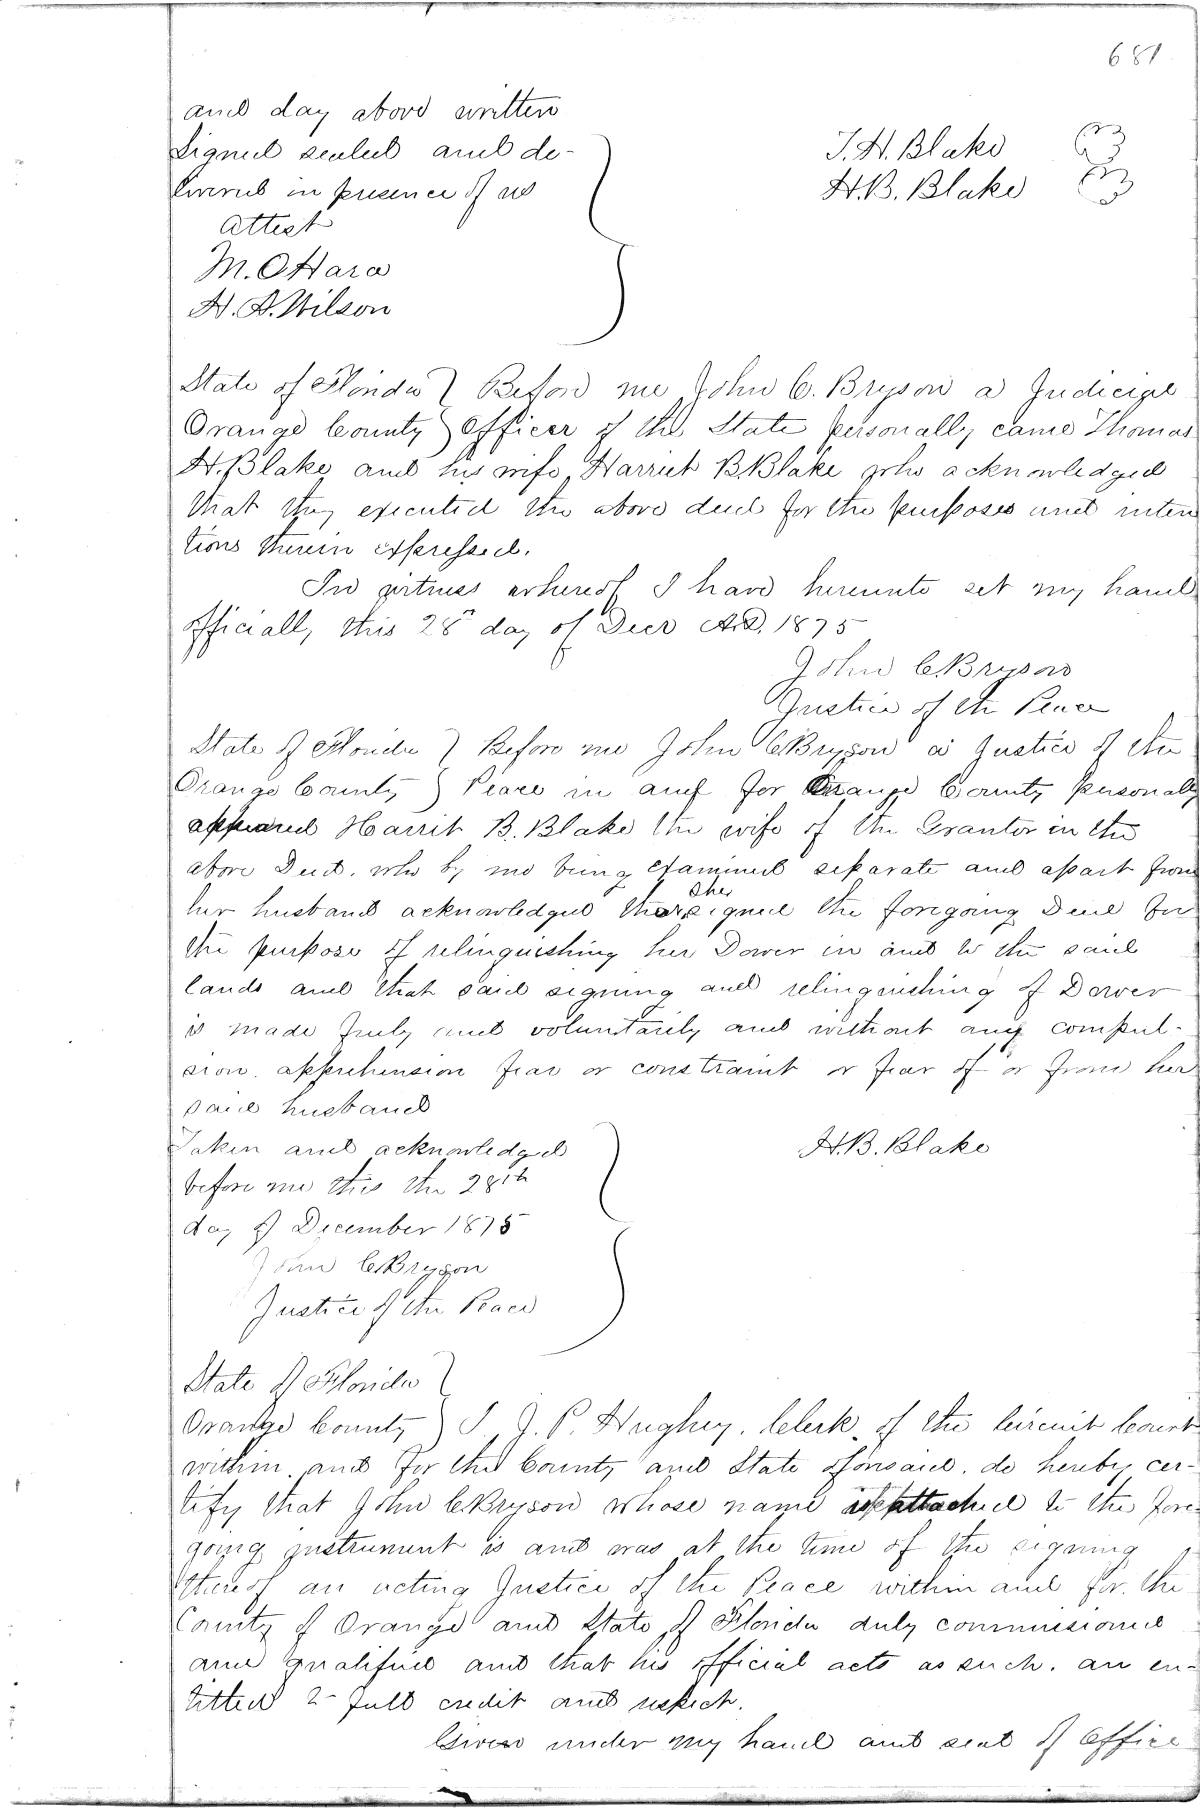 681
and day above written
Signed sealed and de-
livered in presence of us
attest
M. OHara
H. A. Wilson
T. H. Blake
H. B. Blake
State of Florida } Before me John C. Bryson a Judicial
Orange County } Officer of the State personally came Thomas
H. Blake and his wife Harriet B. Blake who acknowledged
that they executed the above deed for the purposes and inten
tions therein expressed.
In witness whereof I have hereunto set my hand
officially this 28" day of Decr A.D. 1875
John C. Bryson
Justice of the Peace
State of Florida } Before me John C Bryson a Justice of the
Orange County } Peace in and for Orange County personally
appeared Harrit B. Blake the wife of the Grantor in the
above Deed. who by me being examined separate and apart from
she
her husband acknowledged that signed the foregoing Deed for
the purpose of relinquishing her Dower in and to the said
lands and that said signing and relinquishing of Dower
is made freely and voluntarily and without any compul-
sion. apprehension fear or constraint or fear of or from her
said husband
H. B. Blake
Taken and acknowledged
before me this the 28th
day of December 1875
John C Bryson
Justice of the Peace
State of Florida }
Orange County } I, J. P. Hughey. Clerk of the Circuit Court
within. and for the County and State aforsaid. do hereby cer-
tify that John C Bryson whose name is attached to the fore-
going instrument is and was at the time of the signing
thereof an acting Justice of the Peace within and for the
County of Orange and State of Florida duly commissioned
and qualified and that his official acts as such. are en-
titled to full credit and respect.
Given under my hand and seal of office